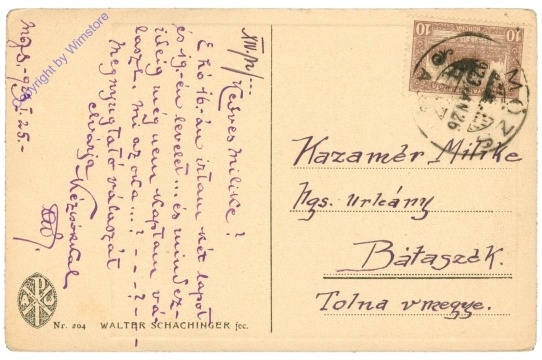 XIV/IV/—
Kedves Milike!
E hó 16.-án irtam két lapot
és 19.-én levelet... és mindez-
ideig még nem kaptam vá-
laszt. mi az oka...? — — ? — —
Megnyugtató válaszát
elvárja Kézicsókkal
Mózs.-923 I. 25.-
Copyright by Wimstore
10 10
MÓZS
923 JAN 26
Kazamér Milike
Ngs. urleány
Bátaszék.
Tolna vmegye.
Nr. 204 WALTER SCHACHINGER fec.